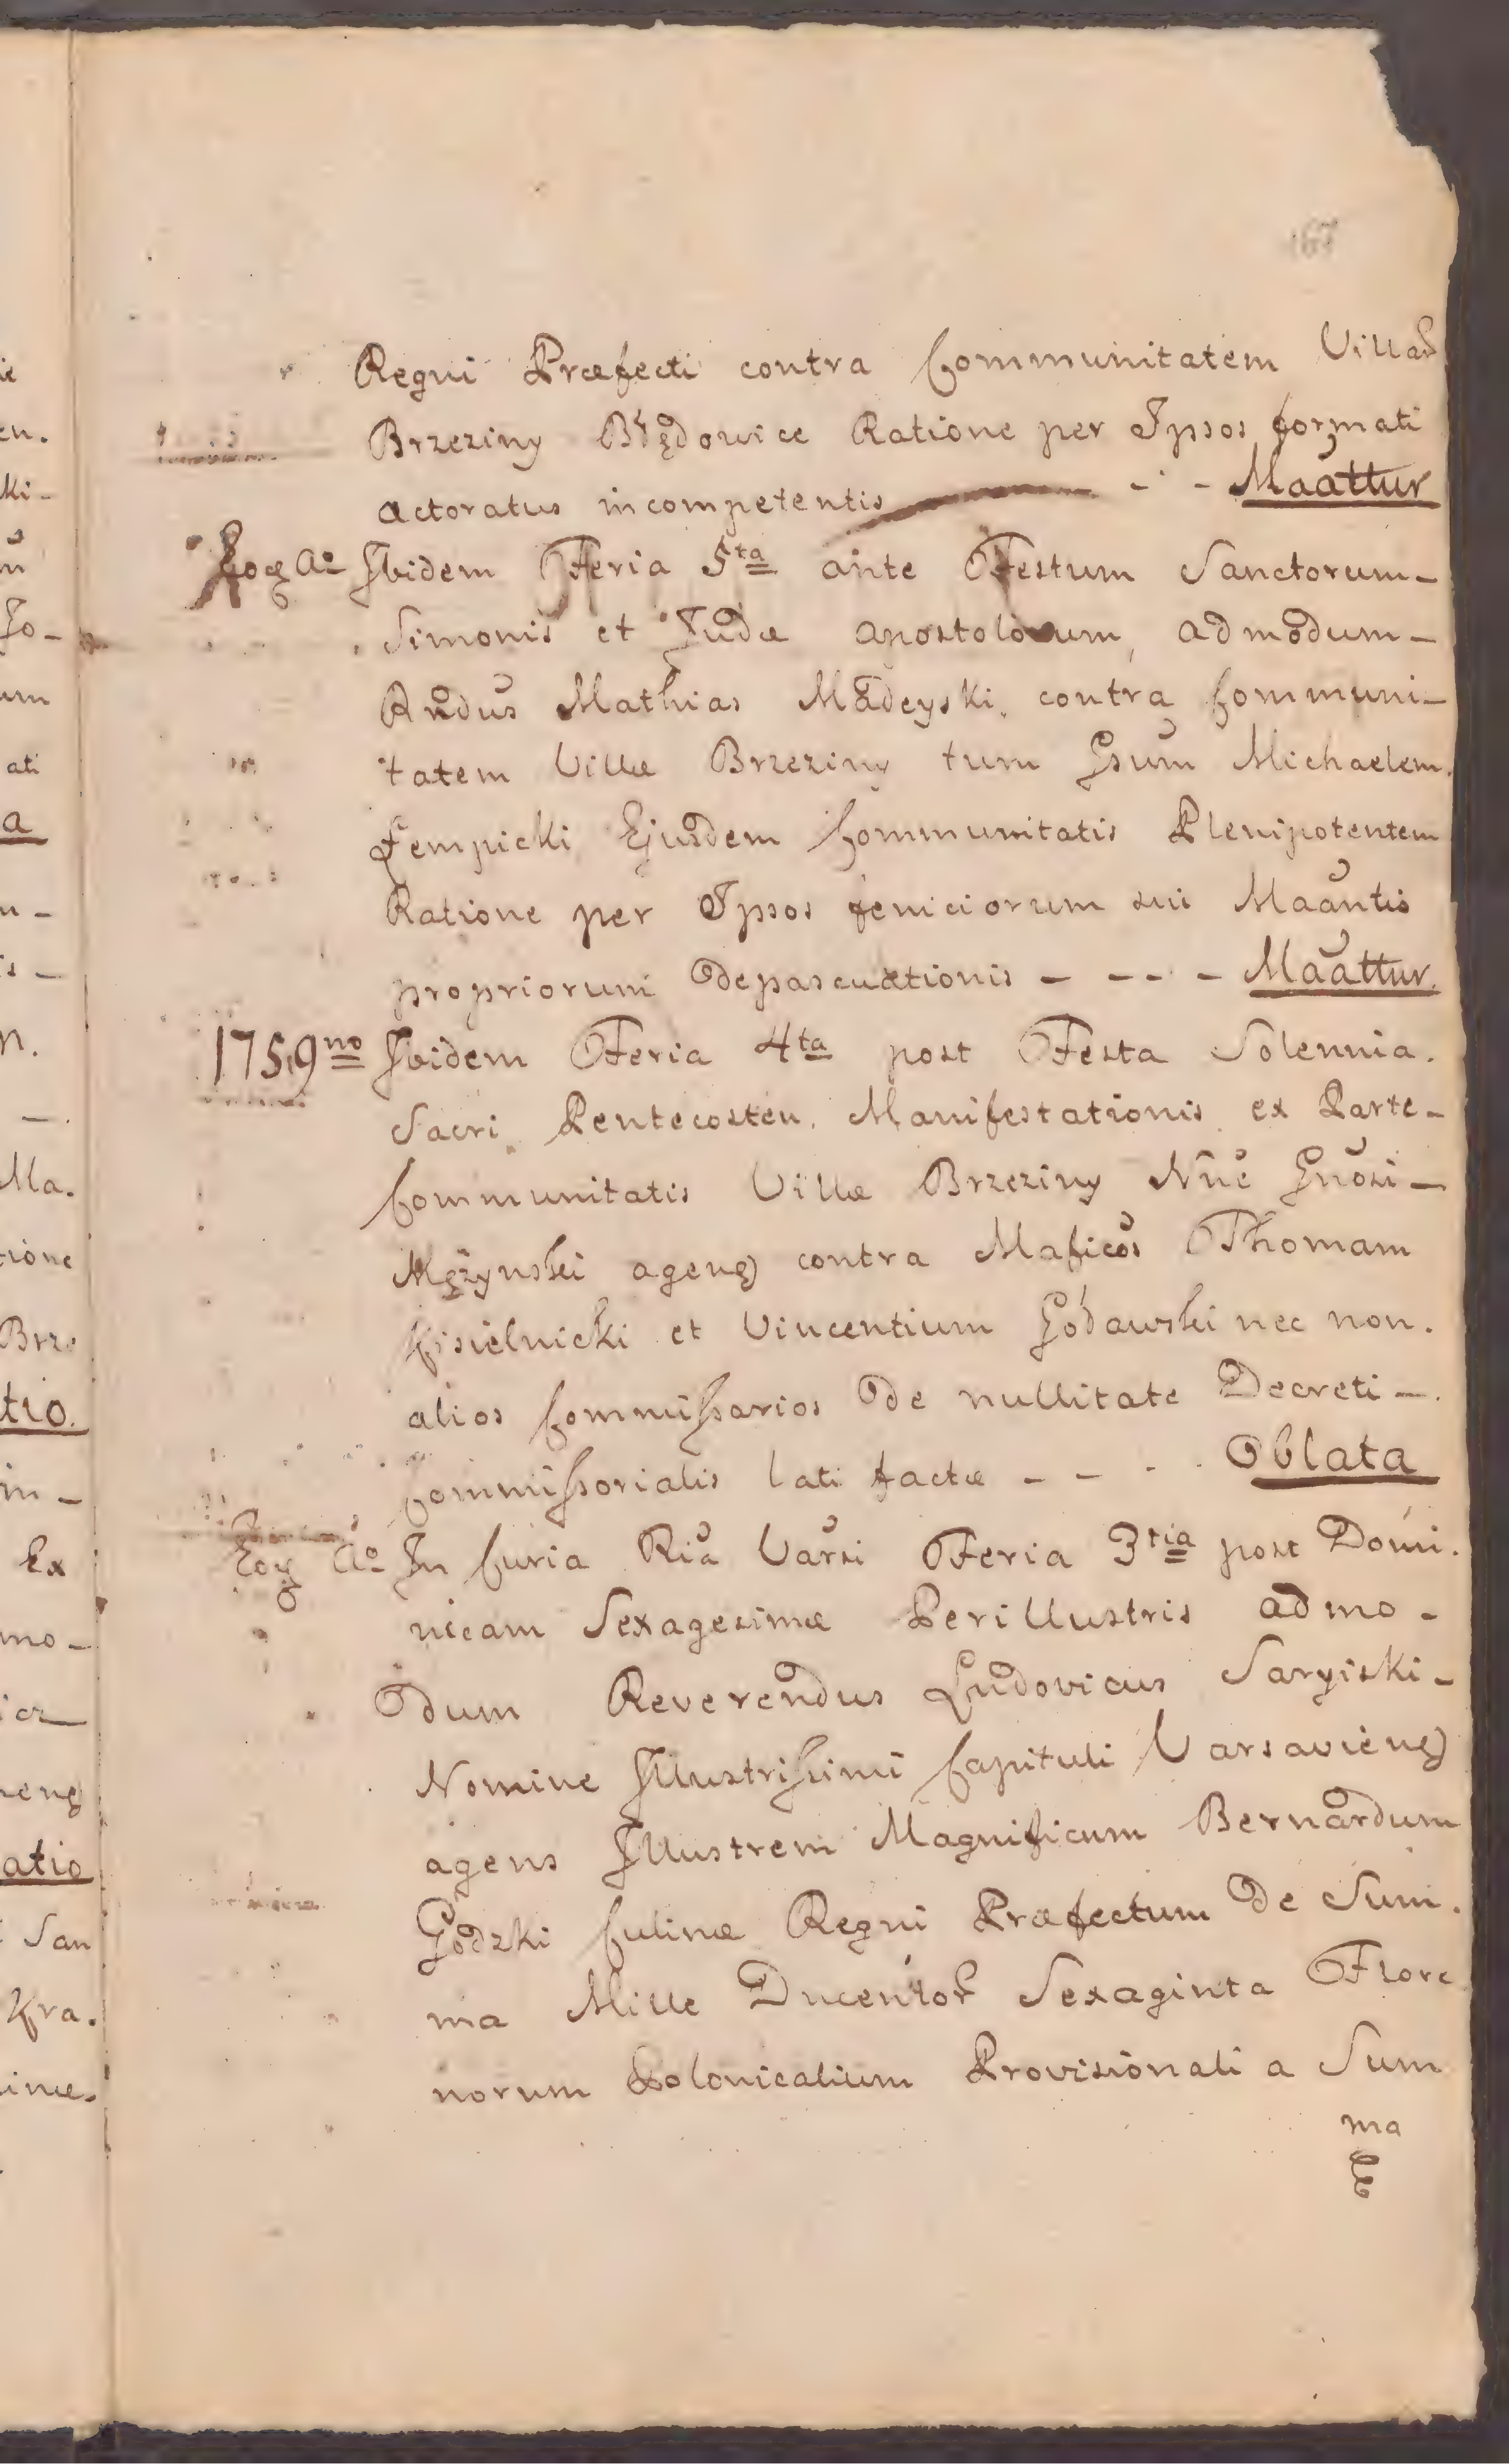 167
Regni Præfecti contra Communitatem Villar
Brzeziny Błędowice Ratione per Ipsos formati
actoratus incompetentis - - - Maattur
Eoq Aº Ibidem Feria 5ta ante Festum Sanctorum -
Simonis et Judæ Apostolorum, admodum -
Rndus Mathias Madeyski contra Communi-
tatem Villæ Brzeziny tum Gsum Michaelem
Łempicki Ejusdem Communitatis Plenipotentem
Ratione per Ipsos feniciorum sui Maantis
propriorum depascuationis - - - - Maattur.
1759no Ibidem Feria 4ta post Festa Solennia.
Sacri Pentecosten. Manifestationis ex Parte -
Communitatis Villæ Brzeziny Nnĕ Gnosi -
Mężynski ageng contra Maficos Thomam
Kisielnicki et Vincentium Godawski nec non.
alios Commissarios de nullitate Decreti -.
Commissorialis lati factæ - - - . Oblata
Eoq Aº In Curia Ria Varsi Feria 3tia post Domi.
nicam Sexagesimæ Perillustris admo -
dum Reverendus Ludovicus Saryiski -
Nomine Illustrissimi Capituli Varsavieng
agens Illustrem Magnificum Bernardum
Godzki Culinæ Regni Præfectum de Sum.
ma Mille Ducentor Sexaginta Flore
norum Polonicalium Provisionali a Sum
ma